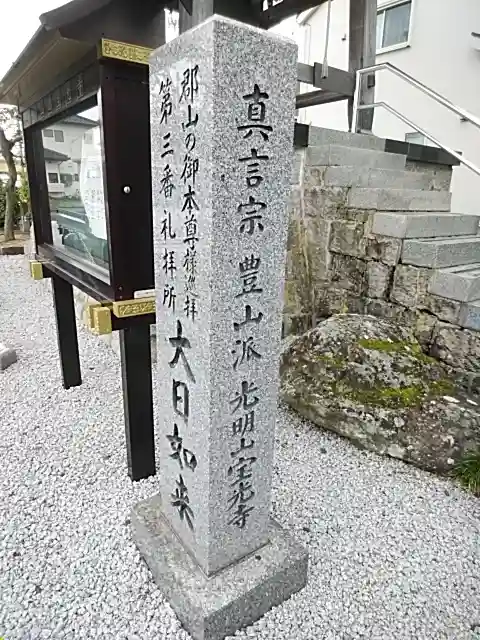 真言宗 豊山派 光明山 宝光寺
郡山の御本尊様巡拝
第三番礼拝所 大日如来